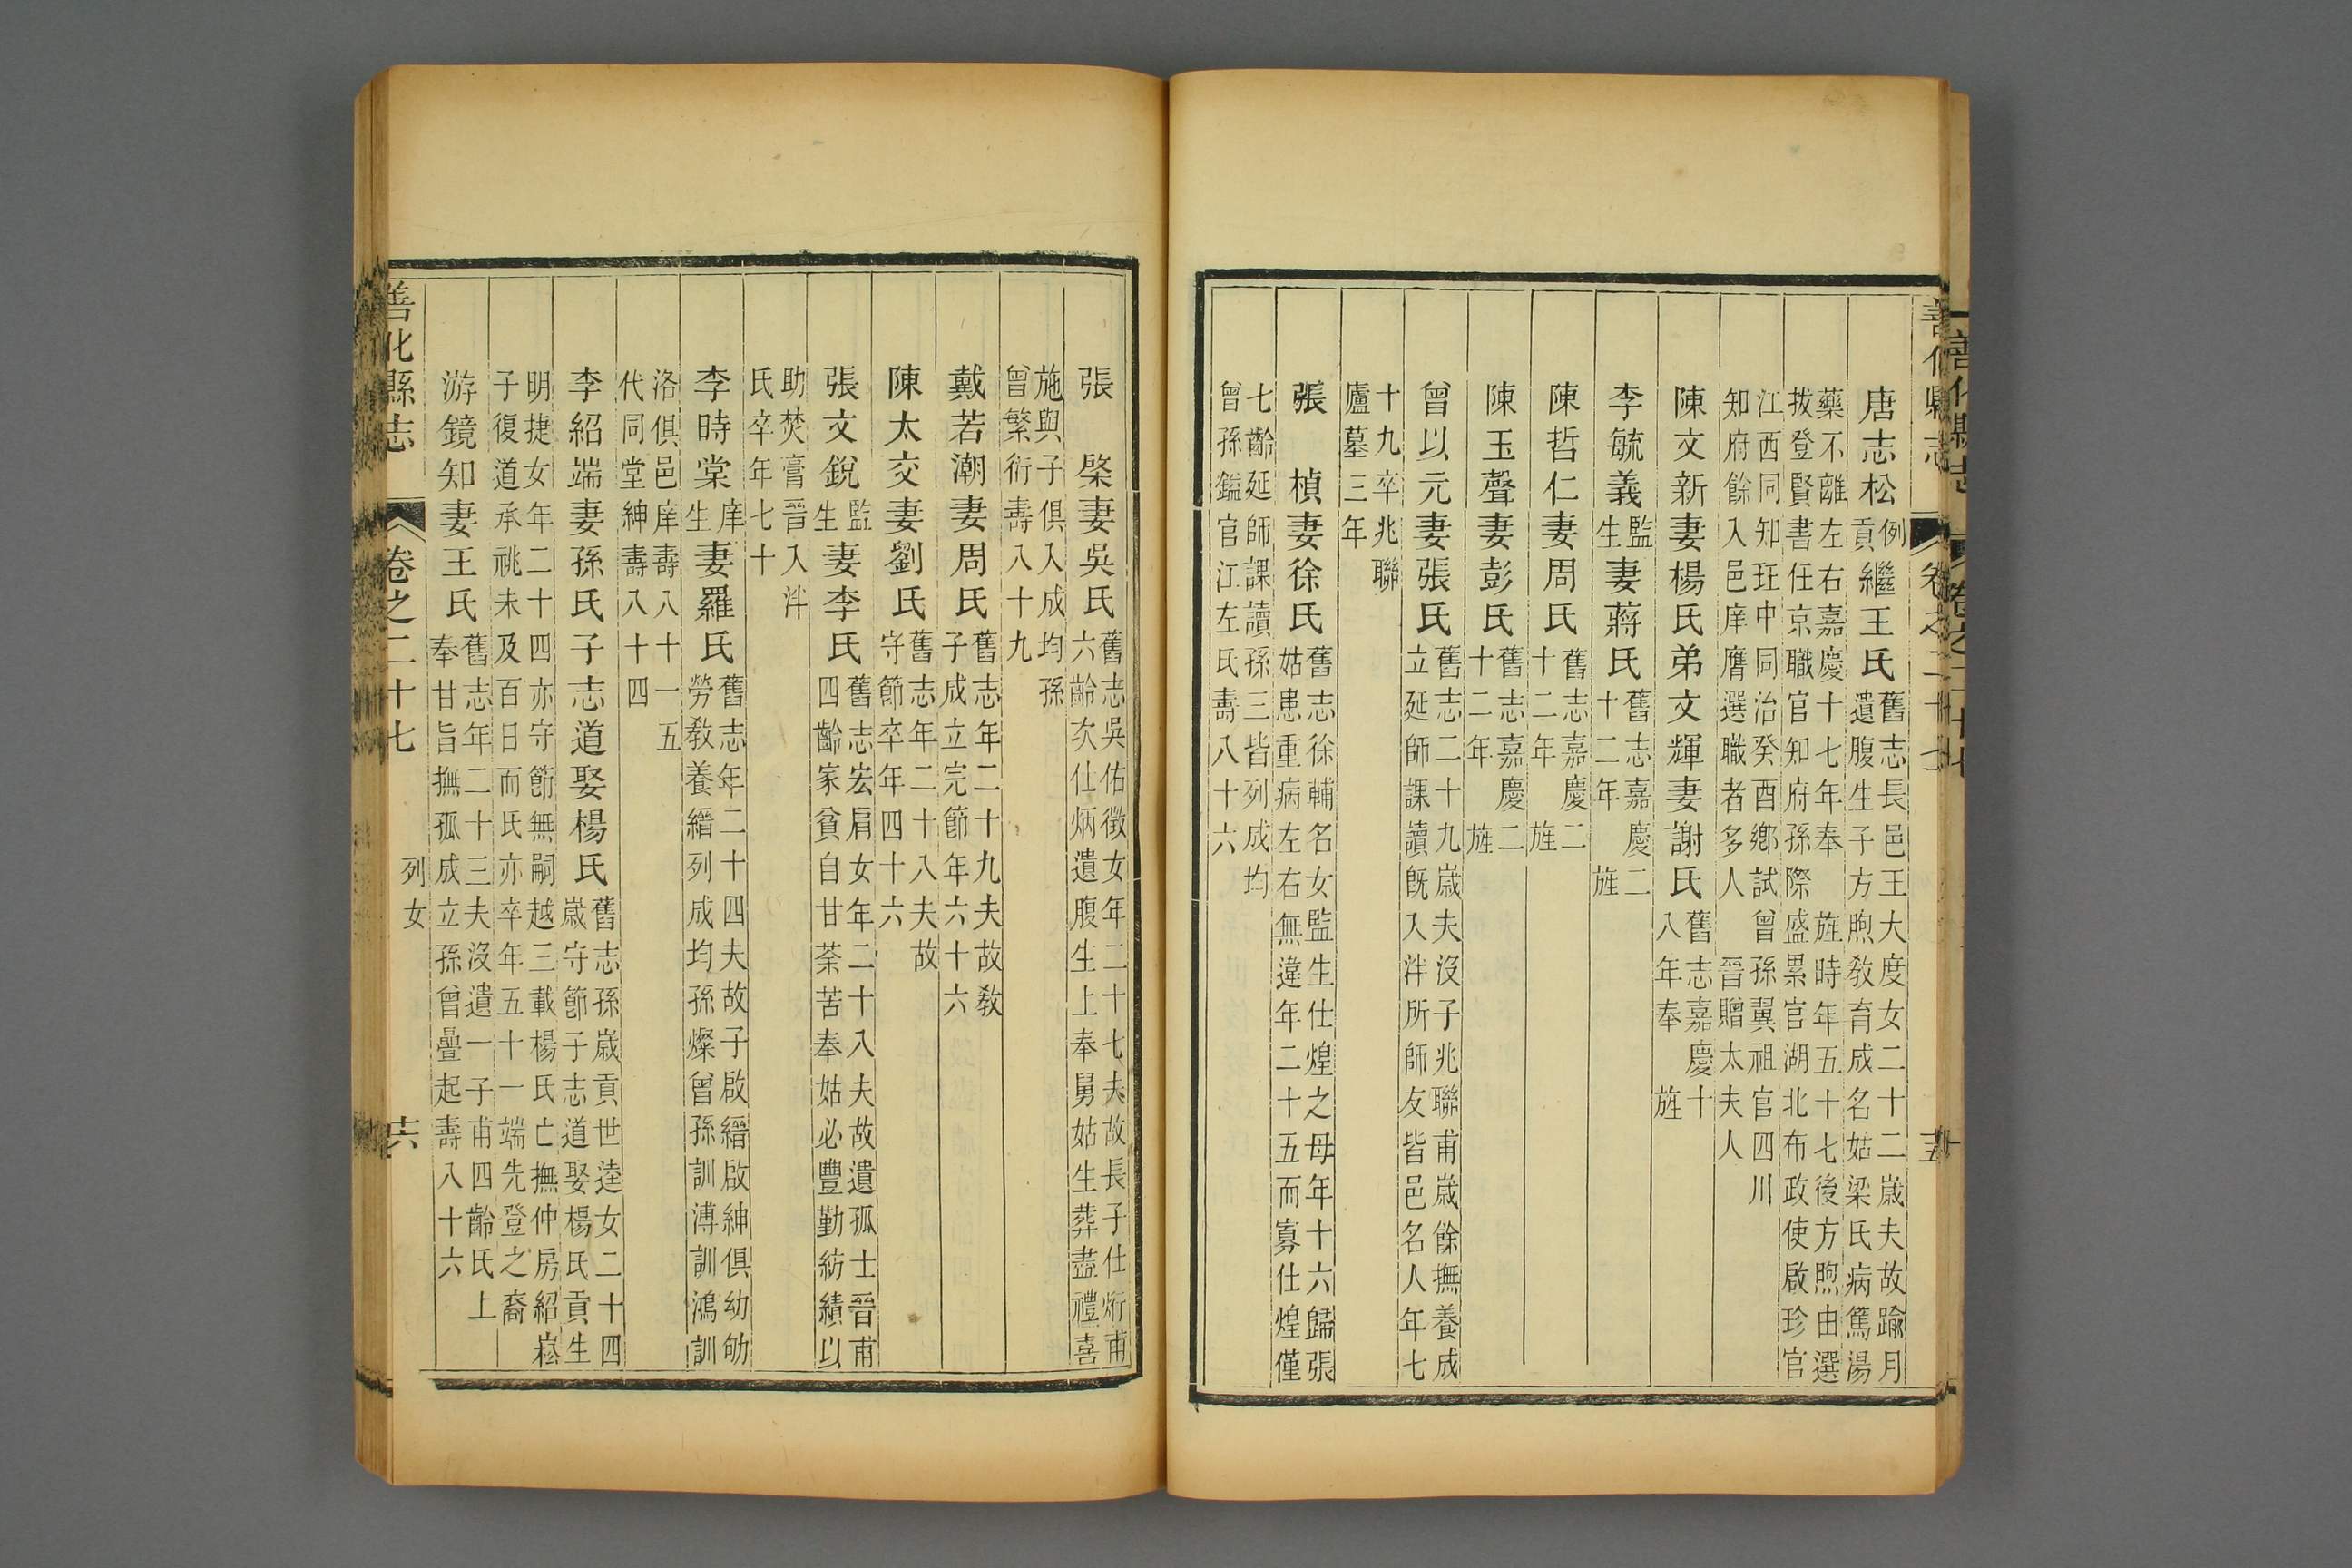 善化縣志 卷之二十七
唐志松例貢繼王氏舊志長邑王大度女二十二歲夫故踰月
遺腹生子方煦敎育成名姑梁氏病篤湯
藥不離左右嘉慶十七年奉 旌時年五十七後方煦由選
拔登賢書任京職官知府孫際盛累官湖北布政使啟珍官
江西同知玨中同治癸酉鄉試曾孫翼祖官四川
知府餘入邑庠膺選職者多人 晉贈太夫人
陳文新妻楊氏弟文輝妻謝氏舊志嘉慶十
八年奉 旌
李毓義監生妻蔣氏舊志嘉慶二
十二年 旌
陳哲仁妻周氏舊志嘉慶二
十二年 旌
陳玉聲妻彭氏舊志嘉慶二
十二年 旌
曾以元妻張氏舊志二十九歲夫沒子兆聯甫歲餘撫養成
立延師課讀旣入泮所師友皆邑名人年七
十九卒兆聯
廬墓三年
張 楨妻徐氏舊志徐輔名女監生仕煌之母年十六歸張
姑患重病左右無違年二十五而寡仕煌僅
七齡延師課讀孫三皆列成均
曾孫鎰官江左氏壽八十六
張 棨妻吳氏舊志吳佑徵女年二十七夫故長子仕焃甫
六齡次仕炳遺腹生上奉舅姑生葬盡禮喜
施與子俱入成均孫
曾繁衍壽八十九
戴若潮妻周氏舊志年二十九夫故敎
子成立完節年六十六
陳太交妻劉氏舊志年二十八夫故
守節卒年四十六
張文銳監生妻李氏舊志宏肩女年二十八夫故遺孤士晉甫
四齡家貧自甘荼苦奉姑必豐勤紡績以
助焚膏晉入泮
氏卒年七十
李時棠庠生妻羅氏舊志年二十四夫故子啟縉啟紳俱幼劬
勞敎養縉列成均孫燦曾孫訓溥訓鴻訓
洛俱邑庠壽八十一五
代同堂紳壽八十四
李紹端妻孫氏子志道娶楊氏舊志孫歲貢世逵女二十四
歲守節子志道娶楊氏貢生
明捷女年二十四亦守節無嗣越三載楊氏亡撫仲房紹崧
子復道承祧未及百日而氏亦卒年五十一端先登之裔
游鏡知妻王氏舊志年二十三夫沒遺一子甫四齡氏上
奉甘旨撫孤成立孫曾疊起壽八十六
善化縣志 卷之二十七 列女 十六